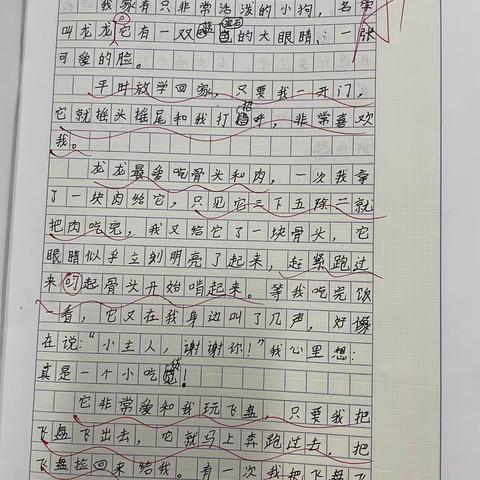 我家有只非常活泼的小狗，名字
叫龙龙。它有一双蓝色的大眼睛，一张
可爱的脸。
平时放学回家，只要我一开门，
它就摇头摇尾和我打招呼，非常喜欢
我。
龙龙最爱吃骨头和肉，一次我拿
了一块肉给它，只见它三下五除二就
把肉吃完，我又给它了一块骨头，它
眼睛似乎立刻明亮了起来，赶紧跑过
来叼起骨头开始啃起来。等我吃完饭
一看，它又在我身边叫了几声，好像
在说："小主人，谢谢你！"我心里想：
真是一个小吃货！
它非常爱和我玩飞盘，只要我把
飞盘飞出去，它就马上奔跑过去，把
飞盘捡回来给我。有一次我把飞盘飞